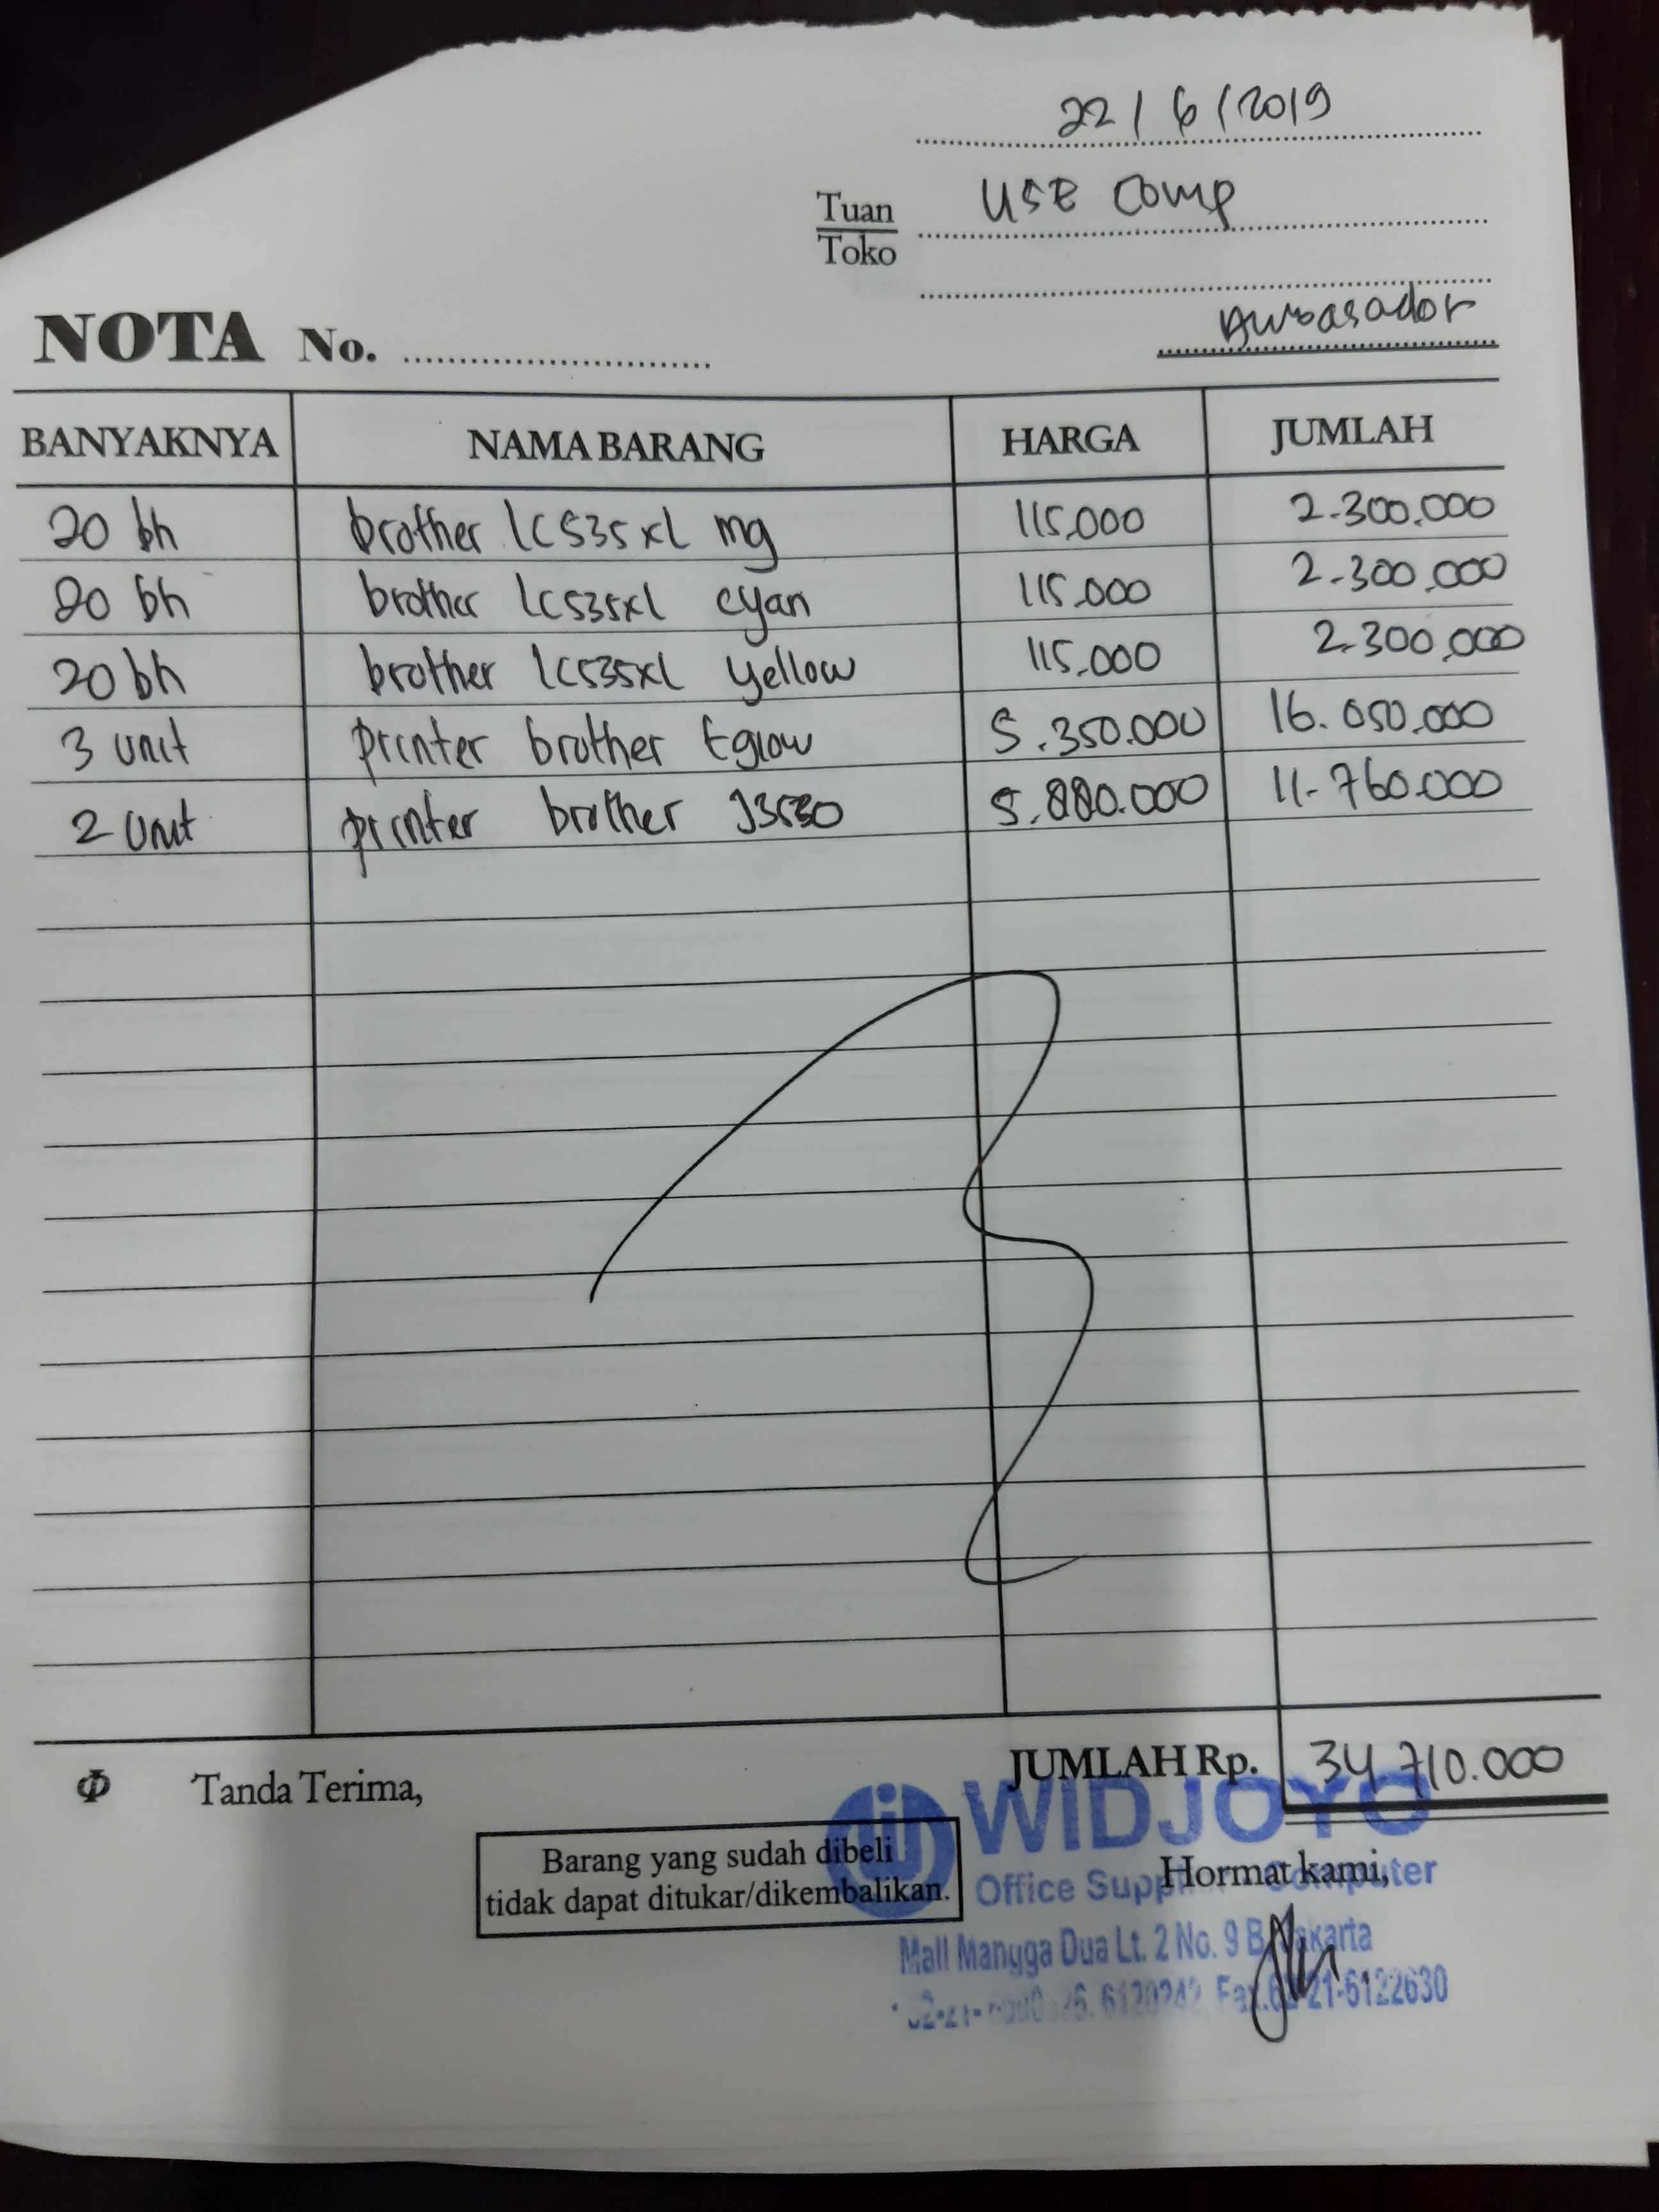 22/6/2019
Tuan
Toko
USE Comp
Ambasador
NOTA No.
BANYAKNYA NAMA BARANG HARGA JUMLAH
20 bh brother LC535xL mg 115.000 2.300.000
20 bh brother LC535xL cyan 115.000 2.300.000
20 bh brother LC535xL yellow 115.000 2.300.000
3 unit printer brother 115.000 5.350.000 16.050.000
2 unit printer brother J3530 5.880.000 11.760.000
JUMLAH Rp. 34.710.000
Tanda Terima,
WIDJOYO
Barang yang sudah dibeli
tidak dapat ditukar/dikembalikan.
Hormat kami,
Office Computer
Mall Mangga Dua Lt. 2 No. 9 B Jakarta
6120242 Fax.62-21-6122630